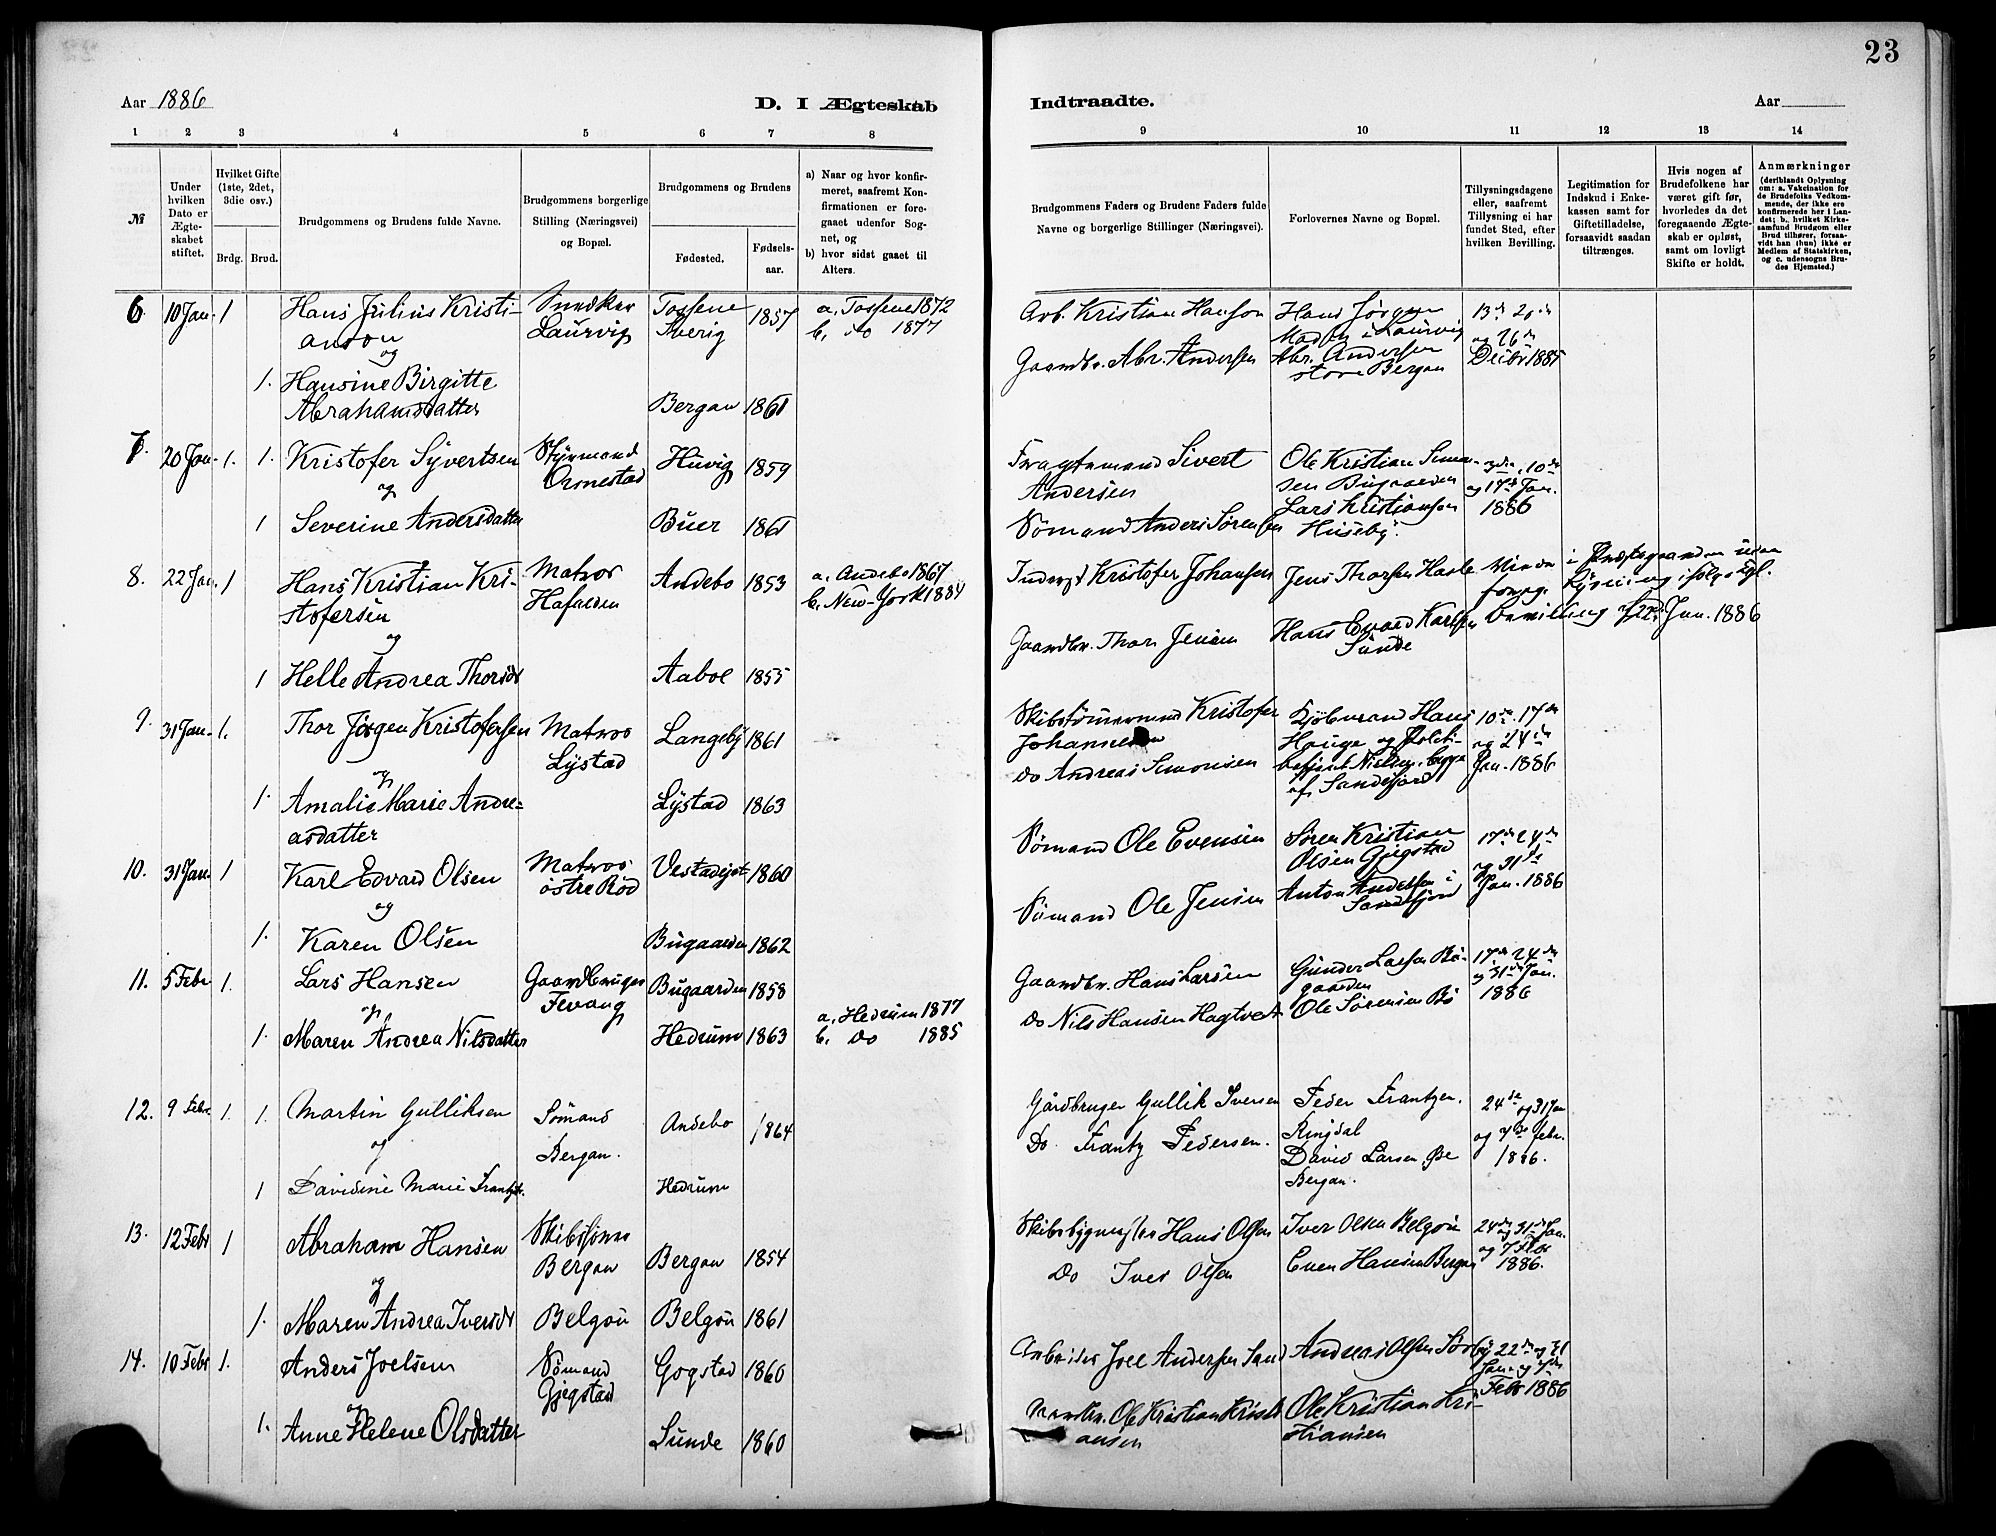 23
Aar 1886
D. I Ægteskab
Indtraadte.
Aar
1 2 3 4 5 6 7 8 9 10 11 12 13 14
№
Under hvilken Dato er Ægteskabet stiftet.
Hvilket Gifte (1ste, 2det, 3die osv.)
Brdg. Brud.
Brudgommens og Brudens fulde Navne.
Brudgommens borgerlige Stilling (Næringsvei) og Bopæl.
Brudgommens og Brudens
Fødested.
Fødsels-aar.
a) Naar og hvor konfirmeret, saafremt Konfirmationen er foregaaet udenfor Sognet, og
b) hvor sidst gaaet til Alters.
Brudgommens Faders og Brudens Faders fulde Navne og borgerlige Stillinger (Næringsvei).
Forlovernes Navne og Bopæl.
Tillysningsdagene eller, saafremt Tillysning ei har fundet Sted, efter hvilken Bevilling.
Legitimation for Indskud i Enkekassen samt for Giftetilladelse, forsaavidt saadan tiltrænges.
Hvis nogen af Brudefolkene har været gift før, hvorledes da det foregaaende Ægteskab er opløst, samt om lovligt Skifte er holdt.
Anmærkninger
(deriblandt Oplysning om: a. Vakcination for de Brudefolks Vedkommende, der ikke ere konfirmerede her i Landet; b. hvilket Kirkesamfund Brudgom eller Brud tilhører, forsaavidt han (hun) ikke er Medlem af Statskirken, og c. udensogns Brudes Hjemsted.)
6 10 Jan. 1 Hans Julius Kristianson Snedker Laurvig Tossene Sverig 1857 a. Tossene 1872 b. do 1877
og
1. Hansine Birgitte Abrahamsdatter Bergan 1861
Arb. Kristian Hanson
Gaardbr. Abr. Andersen
Hans Jørgen Laurvig
Abr. Andersen store Bergan
13de 20de og 26de Decbr 1885
7. 20 Jan. 1. 1. Kristofer Syvertsen Styrmand Ormestad Huvig 1859
og
1 Severine Andersdatter Buer 1861
Fragtemand Sivert Andersen
Sømand Anders Sørensen
Ole Kristian Simonsen Bugaarden
Lars Kristiansen Huseby.
3die, 10de og 17de Jan. 1886
8. 22 Jan. 1 Hans Kristian Kristofersen Matros Andebo 1853 a. Andebo 1867 b. New-York 1884
og
1 Helle Andrea Thorsdr Aaboe 1855
Inderst Kristofer Johansen
Gaardbr. Thor Jensen
Jens Thorsen Hasle
Hans Edvard Karlsen Sunde
Viet i Præstegaarden uden Lysning ifølge kgl. Bevilling af 22. Jan. 1886
9. 31 Jan. 1. Thor Jørgen Kristofersen Matros Lystad Langeby 1861
og
1. Amalie Marie Andreasdatter Lystad 1863
Skibstømmermand Kristofer Johannesen
do Andreas Simonsen
Kjøbmand Hans Hauge og Politibetjent Nielsen, begge af Sandefjord
10de 17de og 24de Jan. 1886
10. 31 Jan. 1 Karl Edvard Olsen Matros østre Rød 1860
og
1. Karen Olsen Bugaarden 1862
Sømand Ole Evensen
Sømand Ole Jensen
Søren Kristian Olsen Gjegstad
Anton Andersen i Sandefjord
17de 24de og 31te Jan. 1886
11. 5 Febr 1. Lars Hansen Gaardbruger Fevang Bugaarden 1858
og
1. Maren Andrea Nilsdatter Hedrum 1863 a. Hedrum 1877 b. do 1885
Gaardbr. Hans Larsen
do Nils Hansen Hagtvedt
Gunder Larsen Bugaarden
Ole Sørensen Bø
17de 24de og 31te Jan. 1886
12. 9 Febr. 1. 1. Martin Gulliksen Sømand Bergan. Andebo 1864
og
1 Davidine Marie Frantzdr. Hedrum
Gårdbruger Gullik Iversen
Do. Frantz Pedersen.
Peder Frantzen. Ringdal
David Larsen, Øe Bergan.
24de og 31 Jan og 7de febr. 1886.
13. 12 Febr 1 Abraham Hansen Bergan Bergan 1854
og
1. Maren Andrea Iversdr Belgau Belgau 1861
Skibsbygmester Hans Olsen
Do Iver Olsen
Iver Olsen Belgau
Even Hansen Bergan
24de og 31te Jan. og 7 Febr 1886.
14. 10 Febr 1. Anders Joelsen Sømand Gjegstad Gogstad 1860
og
1. Anne Helene Olsdatter Sunde 1860
Arbeider Joel Andersen Sand
Gaardbr. Ole Kristian Kristiansen
Andreas Olsen Sørby
Ole Kristian Kristiansen
22de og 31 Jan. og 7de Febr 1886